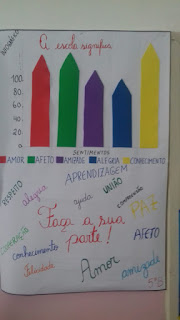 A escola significa
100
80
60
40
20
0
SENTIMENTOS
AMOR AFETO AMIZADE ALEGRIA CONHECIMENTO
APRENDIZAGEM
RESPEITO
alegria
ajuda
UNIÃO
compreensão
PAZ
Faça a sua
parte!
COOPERAÇÃO
conhecimento
AFETO
Felicidade
Amor
amizade
5º B